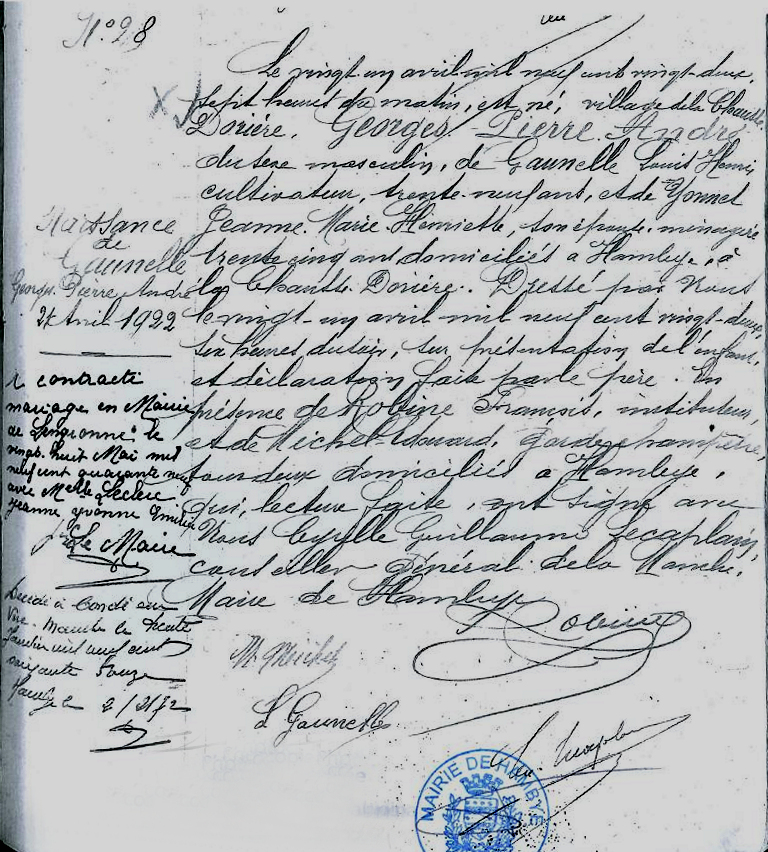 N° 28
Le vingt un avril mil neuf cent vingt-deux,
sept heures du matin, est né, village de la Chaussée
Dorière, Georges Pierre André
du sexe masculin, de Gaunelle Louis Henri,
cultivateur, trente-neuf ans, et de Yonnet
Jeanne Marie Henriette, son épouse, ménagère
trente cinq ans domiciliés à Hambye, à
la Chaussée Dorière. Dressé par Nous
le vingt-un avril mil neuf cent vingt-deux,
six heures du soir, sur présentation de l'enfant,
et déclaration faite par le père. En
présence de Robine François, instituteur,
et de Michel Edouard, garde champêtre,
tous deux domiciliés à Hambye,
qui, lecture faite, ont signé avec
Nous Cyrille Guillaume Lecaplain,
conseiller Général de la Manche,
Maire de Hambye
Naissance
de
Gaunelle
Georges Pierre André
21 Avril 1922
A contracté
mariage en Mairie
de Lengronne le
vingt huit Mai mil
neuf cent quarante neuf
avec Melle Leclerc
Jeanne Yvonne Emilie
Le Maire
Décédé à Condé sur
Vire - Manche le trente
Janvier mil neuf cent
soixante douze
Hambye le 2/2/72
Robine
M. Michel
L Gaunelle
MAIRIE DE HAMBYE